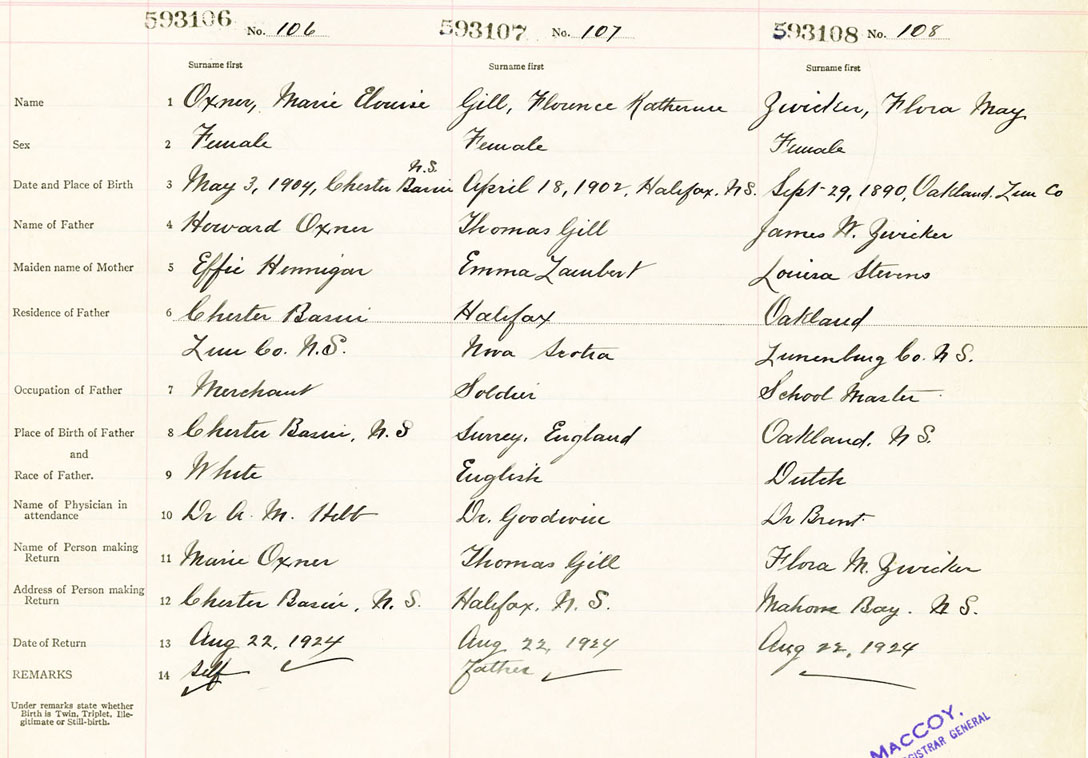 593106 No. 106 593107 No. 107 593108 No. 108
Surname first Surname first Surname first
Name 1 Oxner, Marie Elouise Gill, Florence Katherine Zwicker, Flora May
Sex 2 Female Female Female
N.S.
Date and Place of Birth 3 May 3, 1904, Chester Basin April 18, 1902, Halifax, N.S. Sept 29, 1890, Oakland, Lun Co
Name of Father 4 Howard Oxner Thomas Gill James W. Zwicker
Maiden name of Mother 5 Effie Hennigar Emma Lambert Louisa Stevens
Residence of Father 6 Chester Basin Halifax Oakland
Lun Co. N.S. Nova Scotia Lunenburg Co. N.S.
Occupation of Father 7 Merchant Soldier School Master
Place of Birth of Father 8 Chester Basin, N.S Surrey, England Oakland, N.S.
and
Race of Father. 9 White English Dutch
Name of Physician in
attendance 10 Dr A. M. Hebb Dr. Goodwin Dr Brent
Name of Person making
Return 11 Marie Oxner Thomas Gill Flora M. Zwicker
Address of Person making
Return 12 Chester Basin, N.S. Halifax, N.S. Mahone Bay. N.S.
Date of Return 13 Aug 22, 1924 Aug 22, 1924 Aug 22, 1924
REMARKS 14 Self Father
Under remarks state whether
Birth is Twin, Triplet, Ille-
gitimate or Still-birth.
MACCOY,
GISTRAR GENERAL